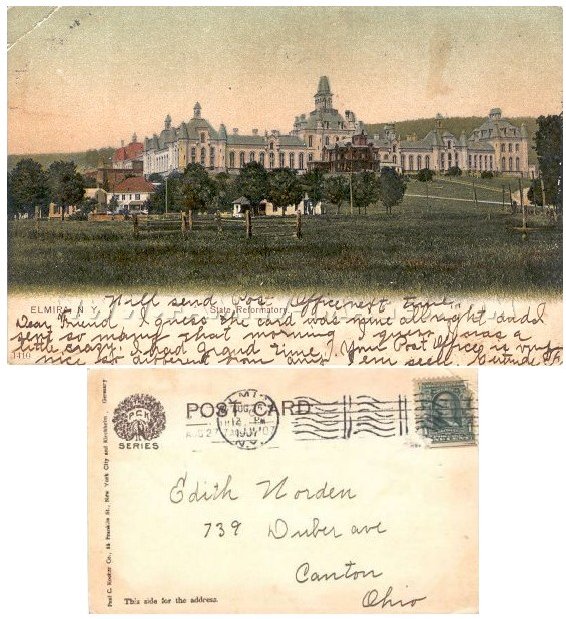 Will send Post Office next time
ELMIRA, N.Y. State Reformatory.
Dear Friend I guess the card was mine allright and I
sent so many that morning I guess I was a
little crazy. (Had a good time) Your Post Office is very
1410 nice so different from any I ever seen.
PCK
SERIES
POST CARD
ELMIRA
AUG
1907
N.Y.
Edith Norden
739 Duber ave
Canton
Ohio
This side for the address.
Paul C. Koeber Co., 85 Franklin St., New York City and Kirchheim, Germany